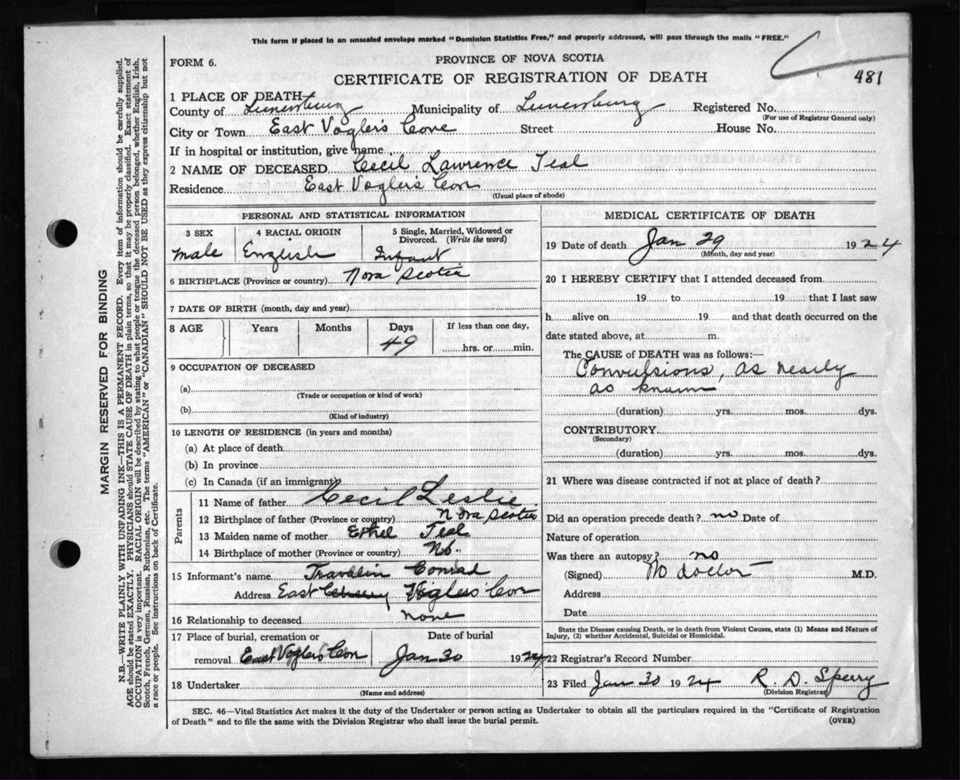 This form if placed in an unsealed envelope marked "Dominion Statistics Free," and properly addressed, will pass through the mails "FREE."
FORM 6.
PROVINCE OF NOVA SCOTIA
CERTIFICATE OF REGISTRATION OF DEATH
481
1 PLACE OF DEATH—
County of Lunenburg Municipality of Lunenburg Registered No.
(For use of Registrar General only)
City or Town East Vogler's Cove Street House No.
If in hospital or institution, give name
2 NAME OF DECEASED Cecil Lawrence Teal
Residence East Vogler's Cov
(Usual place of abode)
PERSONAL AND STATISTICAL INFORMATION
3 SEX 4 RACIAL ORIGIN 5 Single, Married, Widowed or Divorced. (Write the word)
male English Infant
6 BIRTHPLACE (Province or country) Nova Scotia
7 DATE OF BIRTH (month, day and year)
8 AGE Years Months Days If less than one day,
49 hrs. or min.
9 OCCUPATION OF DECEASED
(a)
(Trade or occupation or kind of work)
(b)
(Kind of industry)
10 LENGTH OF RESIDENCE (in years and months)
(a) At place of death
(b) In province
(c) In Canada (if an immigrant)
Parents
11 Name of father Cecil Leslie
12 Birthplace of father (Province or country) Nova Scotia
13 Maiden name of mother Ethel Teal
14 Birthplace of mother (Province or country) NS.
15 Informant's name Conrad
Address East Voglers Cov
16 Relationship to deceased none
17 Place of burial, cremation or Date of burial
removal East Vogler's Cov Jan 30 1924
18 Undertaker
(Name and address)
MEDICAL CERTIFICATE OF DEATH
19 Date of death Jan 29 1924
(Month, day and year)
20 I HEREBY CERTIFY that I attended deceased from
19 to 19 that I last saw
h alive on 19 and that death occurred on the
date stated above, at m.
The CAUSE of DEATH was as follows:—
Convulsions, as nearly
as known
(duration) yrs. mos. dys.
CONTRIBUTORY
(Secondary)
(duration) yrs. mos. dys.
21 Where was disease contracted if not at place of death?
Did an operation precede death? no Date of
Nature of operation
Was there an autopsy? no
(Signed) No doctor M.D.
Address
Date
State the Disease Causing Death, or in death from Violent Causes, state (1) Means and Nature of
Injury, (2) whether Accidental, Suicidal or Homicidal.
22 Registrar's Record Number
23 Filed Jan 30 1924 R. D. Sperry
(Division Registrar)
SEC. 46—Vital Statistics Act makes it the duty of the Undertaker or person acting as Undertaker to obtain all the particulars required in the "Certificate of Registration
of Death" and to file the same with the Division Registrar who shall issue the burial permit.
(OVER)
MARGIN RESERVED FOR BINDING
N.B.—WRITE PLAINLY WITH UNFADING INK—THIS IS A PERMANENT RECORD. Every item of information should be carefully supplied.
AGE should be stated EXACTLY. PHYSICIANS should STATE CAUSE OF DEATH in plain terms, so that it may be properly classified. Exact statement of
OCCUPATION is very important. RACIAL ORIGIN will be described by stating to what people or tongue the deceased person belonged, whether English, Irish,
Scotch, French, German, Russian, Ruthenian, etc. The terms "AMERICAN" or "CANADIAN" SHOULD NOT BE USED as they express citizenship but not
a race or people. See instructions on back of Certificate.